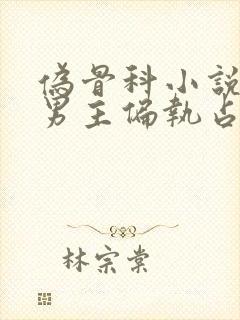 偽骨科小說
男主偏執占
林宗棠